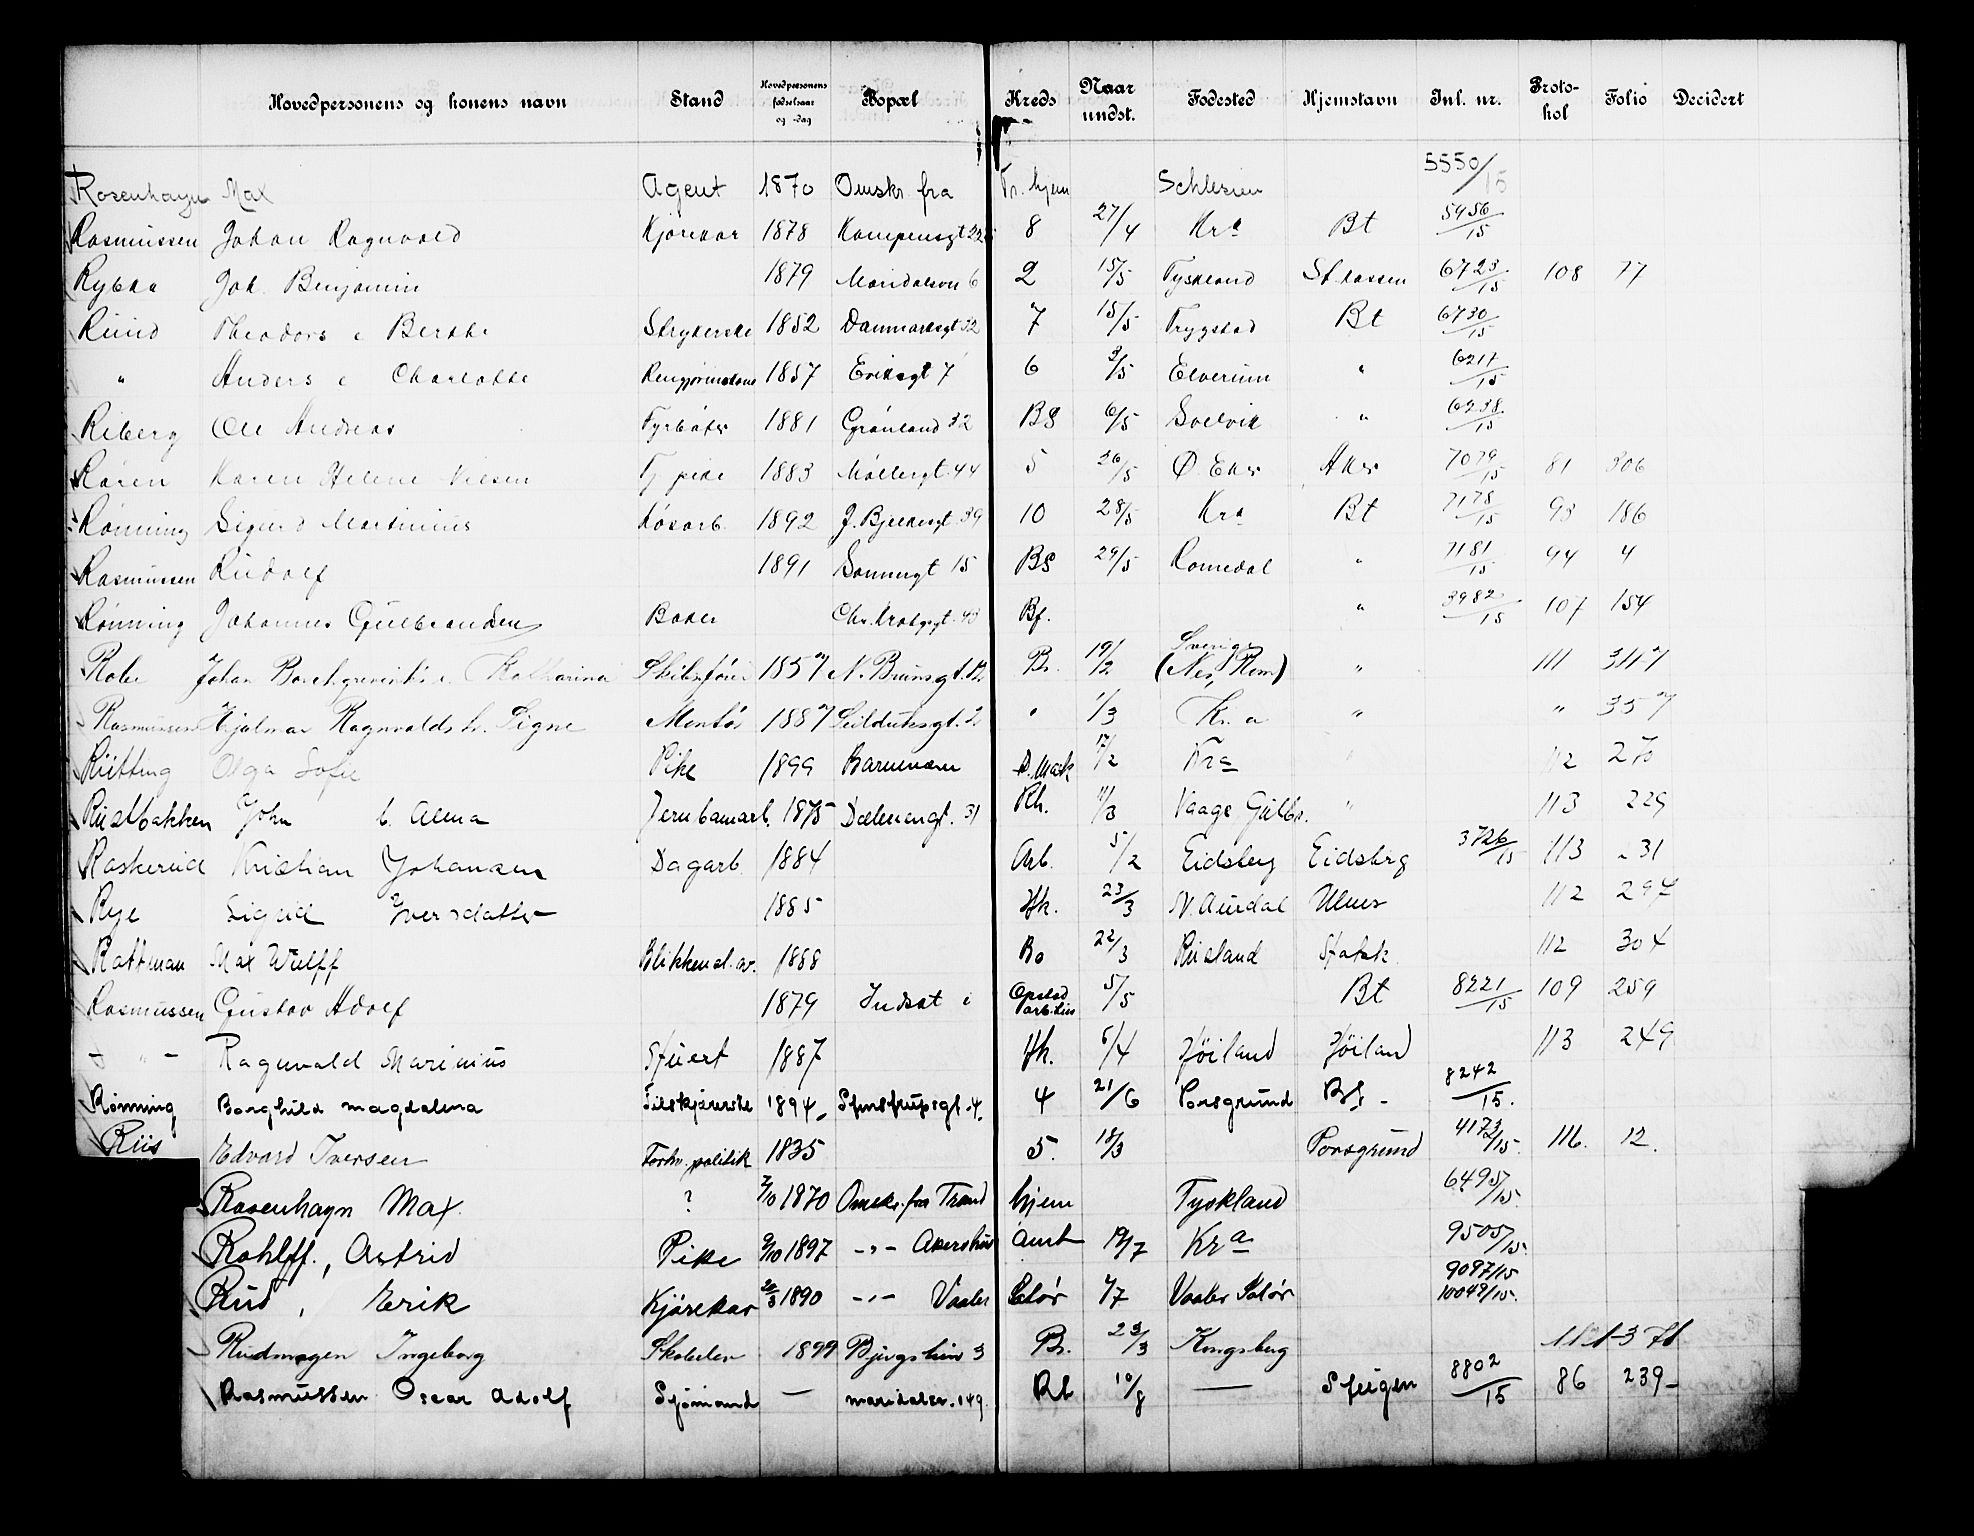 Hovedpersonens og konens navn Stand Hovedpersonens fødselsaar og -dag Bopæl Kreds Naar undst. Fødested Hjemstavn Inl. nr. Protokol Folio Decidert
Rosenhayn Max Agent 1870 Omskr. fra Tr. hjem Schlesien 5550/15
Rasmussen Johan Ragnvald Kjørekar 1878 Kampensgt 22 8 27/4 Kra Bt 5456/15
Rybka Joh. Benjamin 1879 Maridalsvn 6 2 15/5 Tyskland St.kassen 6723/15 108 77
Ruud Theodors e Berthe Strykerske 1852 Danmarksgt 32 7 15/5 Trygstad Bt 6730/15
" Anders e Charlotte 1857 Eriksgt 7 6 3/5 Elverum " 6217/15
Riberg Ole Andreas Fyrbøter 1881 Grønland 32 BS 6/5 Svelvik " 6238/15
Røren Karen Helene Nilsen Tj. pike 1883 Møllergt. 44 5 26/5 Ø. Eker Aker 7079/15 81 306
Rønning Sigurd Martinius Løsarb. 1892 J. Bjelkesgt. 39 10 28/5 Kra Bt 7178/15 93 186
Rasmussen Rudolf 1891 Sannergt 15 BS 29/5 Romedal " 7181/15 94 4
Rønning Johannes Gulbrandsen Baker Chr. Krohgsgt. 43 Bf. " 3982/15 107 154
Robe Johan e. Katharina Skibsfører 1857 N. Brunsgt. Br. 19/2 Sverige (Nes, Rom) " 111 347
Rasmussen Hjalmar Ragnvald h. Signe Montør 1887 Seilduksgt. 2 " 1/3 Kr.a " " 357
Rütting Olga Sofie Pike 1899 Barnevern D. Mark 17/2 Kra " 112 270
Rustbakken John h. Alma Jernbanearb. 1875 Dælenengt. 31 Rh. 11/3 Vaage Gulbr. " 113 229
Raskerud Kristian Johansen Dagarb. 1884 Arb. 5/2 Eidsberg Eidsberg 3726/15 113 231
Rye Sigrid Iversdatter 1885 Hk. 23/3 N. Aurdal Ulnes 112 297
Rottman Max Wulff Blikkensl. ar. 1888 Bo 22/3 Rusland Statsk. 112 304
Rasmussen Gustav Adolf 1879 Indsat i Opstad arb.hus 5/5 Bt 8221/15 109 259
- " - Ragnvald Marinius Stuert 1887 Hk. 6/4 Høiland Høiland 113 249
Rønning Borghild Magdalena Filskjærerske 1894 Stenstrupsgt. 4. 4 21/6 Porsgrund Bt - 8242/15.
Riis Edvard Iversen Forhv. politik 1835 5. 18/3 Porsgrund 4173/15. 116. 12.
Rosenhayn Max. ? 2/10 1870 Omskr. fra Trond hjem Tyskland 6495/15.
Rohlff., Astrid Pike 9/10 1897 -"- Akershus Amt 19/7 Kra 9505/15.
Rud, Erik Kjørekar 20/3 1890 -"- Vaaler Solør 7/7 Vaaler Solør 9097/15 10049/15.
Rudmogen Ingeborg Skoleelev 1899 Bjergstien 3 Br. 23/3 Kongsberg 111-371
Rasmussen Oscar Adolf Sjømand — Maridalsv. 149. Rb 10/8 — Stuigen 8802/15 86 239-